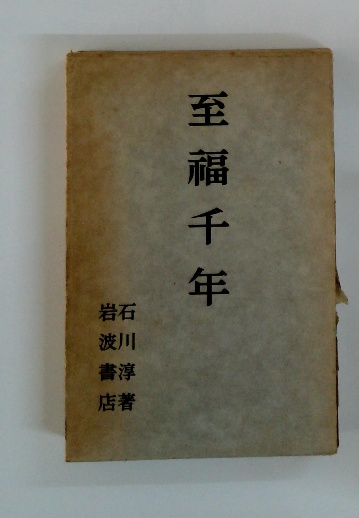 至福千年
石川淳著
岩波書店